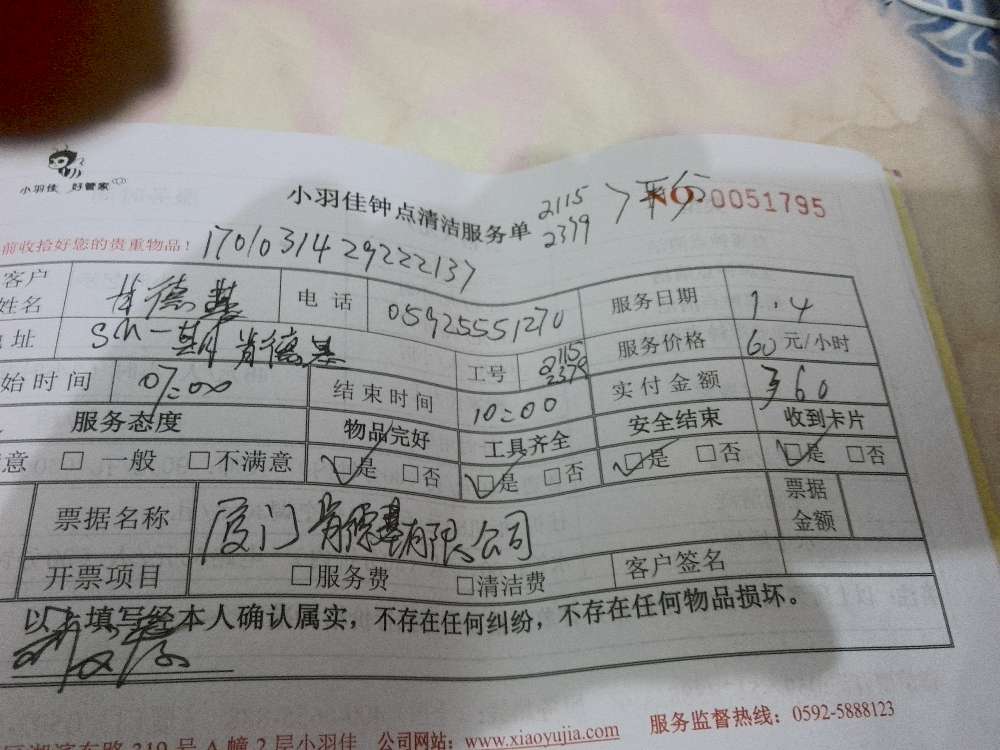 小羽佳 好管家
小羽佳钟点清洁服务单 2115 2379 > 平分 NO.0051795
前收拾好您的贵重物品！ 1701031429222137
客户姓名 肯德基 电话 05925551270 服务日期 1.4
地址 SM一期肯德基 工号 2115 2379 服务价格 60元/小时
始时间 07:00 结束时间 10:00 实付金额 360
服务态度 物品完好 工具齐全 安全结束 收到卡片
意 □ 一般 □不满意 □是 □否 □是 □否 □是 □否 □是 □否
票据名称 厦门肯德基有限公司 票据金额
开票项目 □服务费 □清洁费 客户签名
以上填写经本人确认属实，不存在任何纠纷，不存在任何物品损坏。
区湖滨东路319号A幢2层小羽佳 公司网站：www.xiaoyujia.com 服务监督热线：0592-5888123